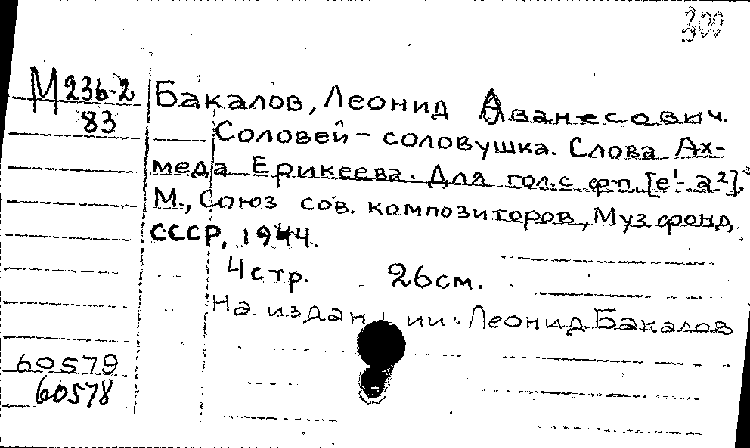 300
М 236-2
83
Бакалов, Леонид Аванесович.
Соловей - соловушка. Слова Ах-
меда Ерикеева. Для гол. с ф-п. [e¹- a²].
М., Союз сов. композиторов, Музфонд
СССР, 1944.
4 стр. 26 см.
На издании: Леонид Бакалов
60579
60578